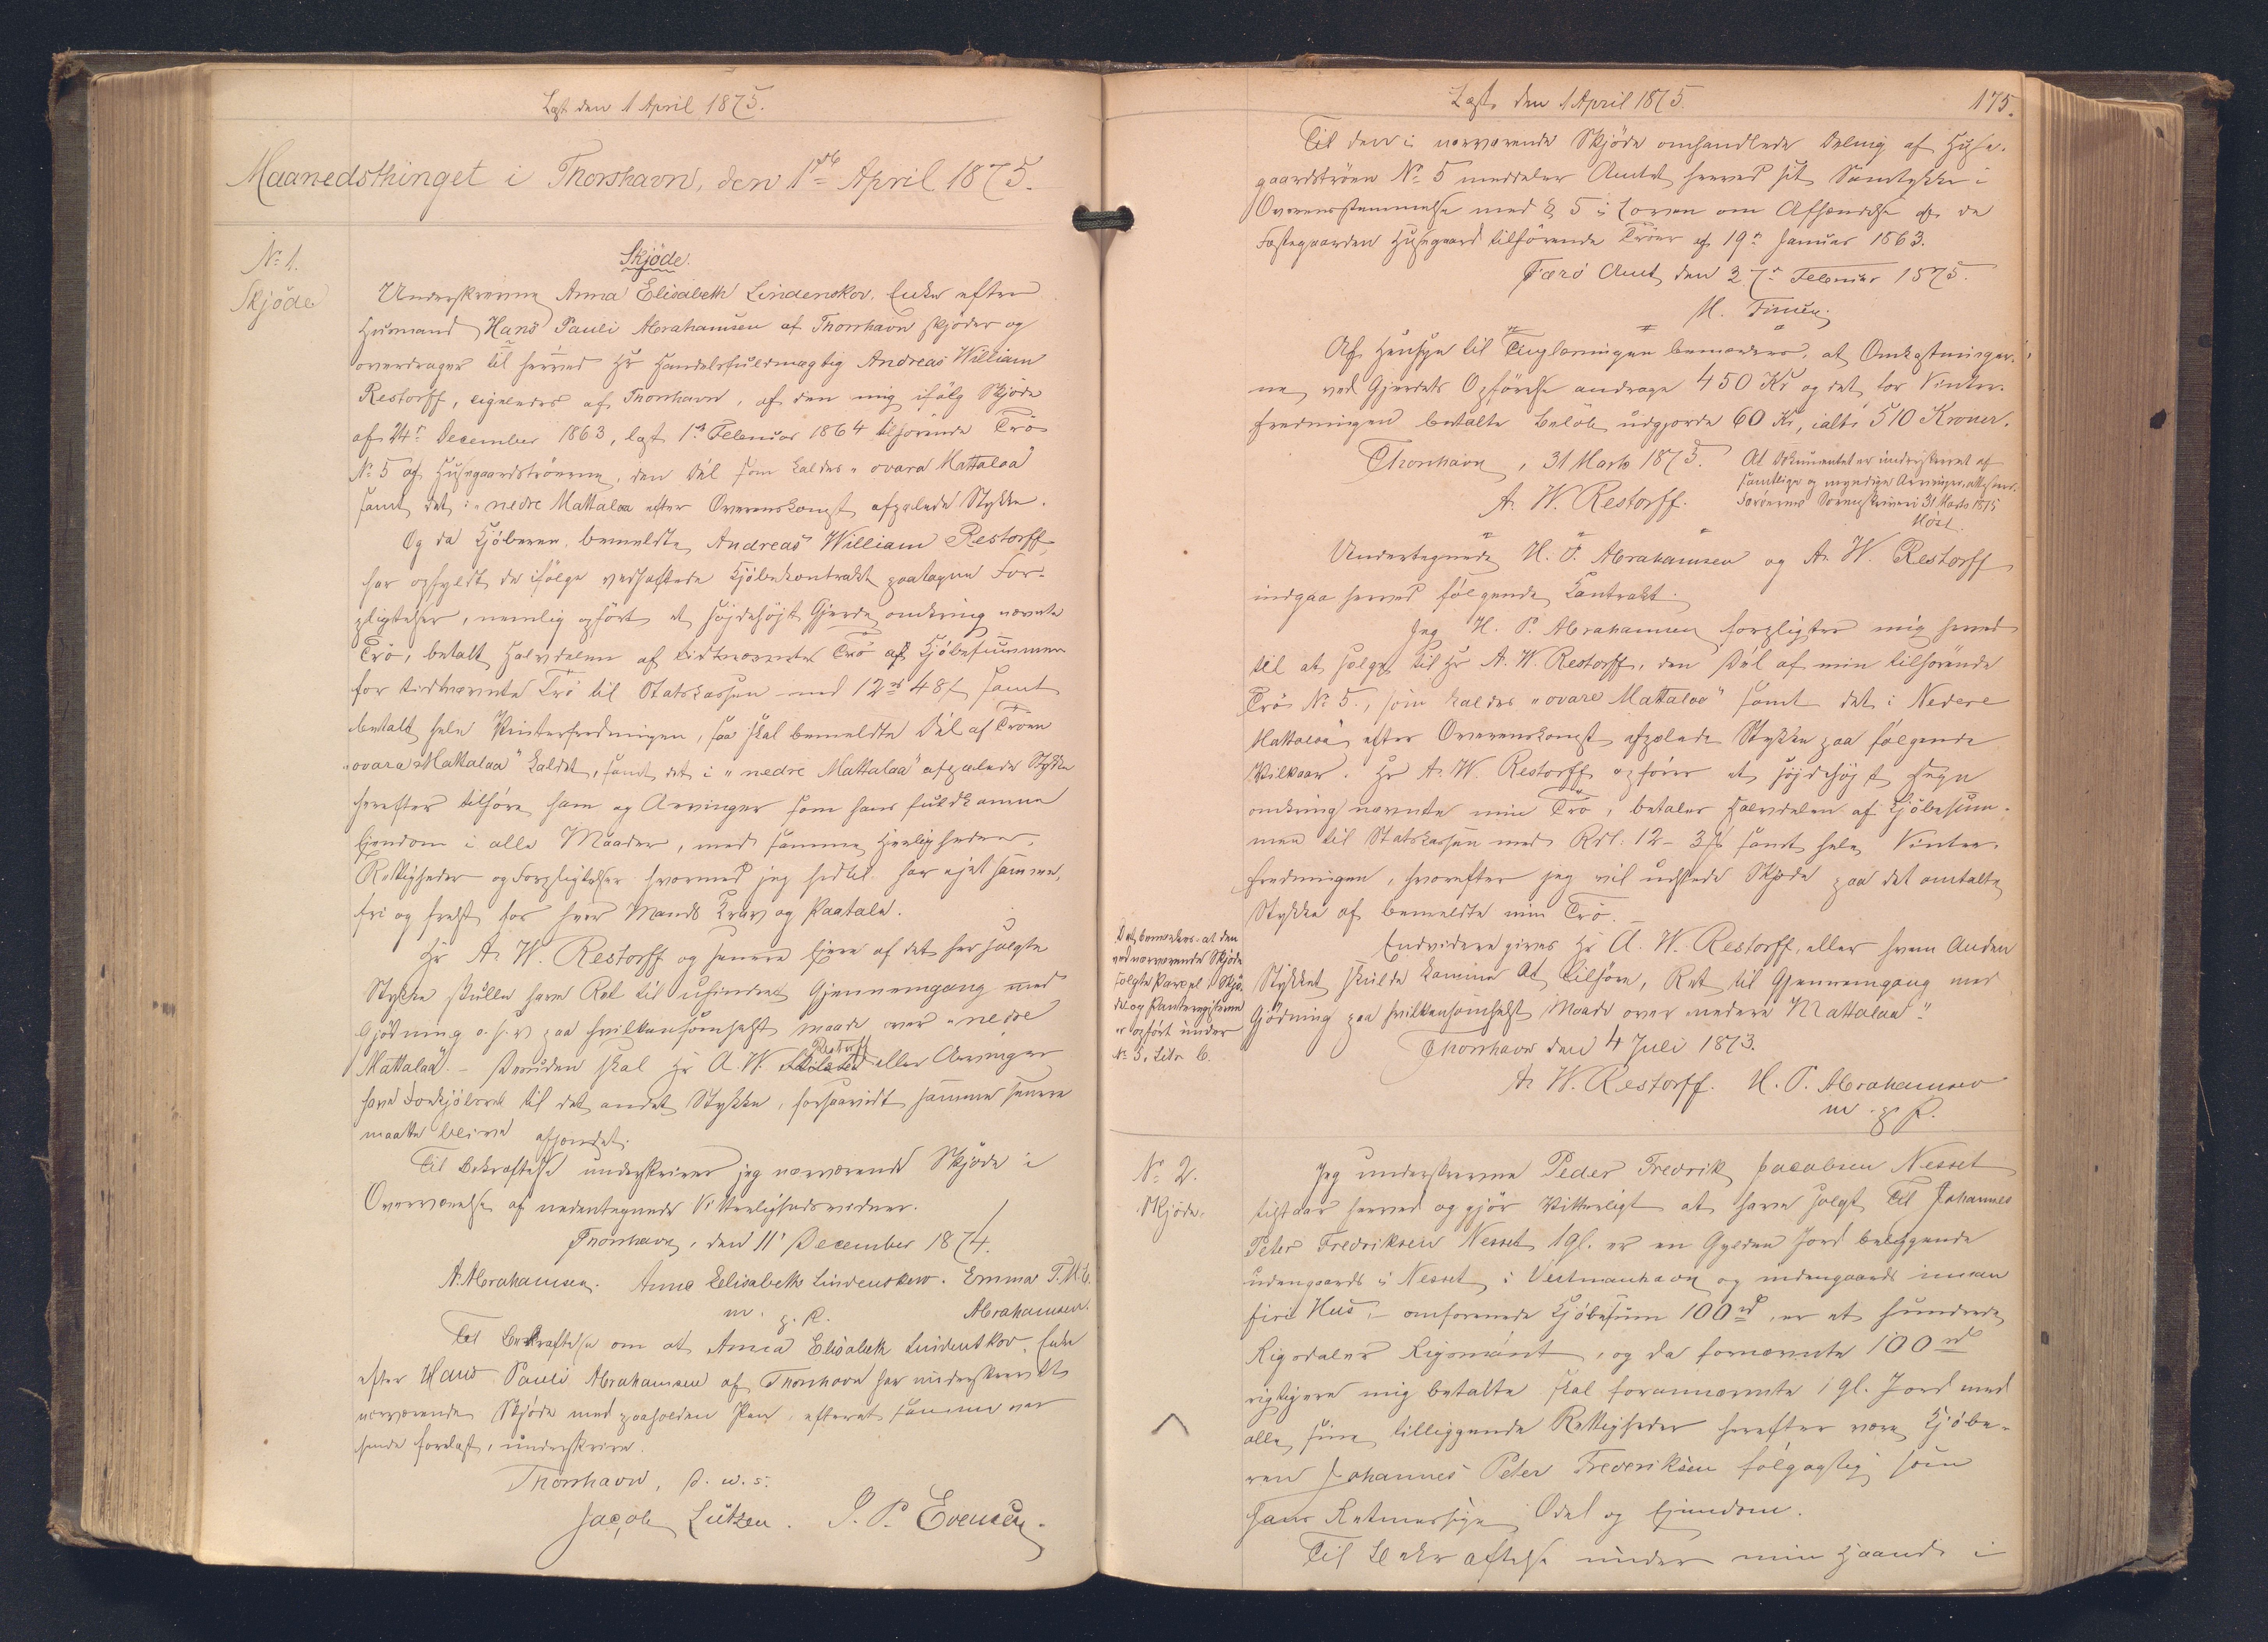 Læst den 1 April 1875.
Maanedsthinget i Thorshavn, den 1ste April 1875.
No 1.
Skjøde
Skjøde.
Underskrevne Anna Elisabeth Lindenskov, Enke efter
Husmand Hans Pauli Abrahamsen af Thorshavn skjøder og
overdrager til herved Hr Handelsfuldmægtig Andreas William
Restorff, ligeledes af Thorshavn, af den mig ifølge Skjøde
af 24de December 1863, læst 1ste Februar 1864 tilhørende Trö
No 5 af Husegaardströerne, den Del som kaldes "ovara Mattalaa"
samt det i "nedre Mattalaa efter Overenskomst afpælede Stykke.
Og da Kjøberen, bemeldte Andreas William Restorff,
har opfyldt de ifølge vedhæftede Kjøbekontrakt paatagne For-
pligtelser, nemlig opført et højdehöjt Gjerde omkring nævnte
Trö, betalt Halvdelen af sidstnævnte Trö af Kjøbesummen
for sidstnævnte Trö til Statskassen med 12 rd 48 s samt
betalt hele Vinterfredningen, saa skal bemeldte Del af Tröen
"ovara Mattalaa" kaldet, samt det i "nedre Mattalaa" afpælede Stykke
herefter tilhøre ham og Arvinger som hans fuldkomne
Ejendom i alle Maader, med samme Herligheder,
Rettigheder og Forpligtelser hvormed jeg hidtil har ejet samme,
fri og frelst for hver Mands Krav og Paatale.
Hr A. W. Restorff og senere Ejere af det her solgte
Stykke skulle have Ret til uhindret Gjennemgang med
Gjødning o. s. v. paa hvilkensomhelst Maade over "nedre
Mattalaa". – Desuden skal Hr A. W. Restorff eller Arvinger
have Forkjøbsret til det andet Stykke, forsaavidt samme senere
maatte blive afhændet.
Til Bekræftelse underskriver jeg nærværende Skjøde i
Overværelse af nedentegnede Vitterlighedsvidner.
Thorshavn, den 11' December 1874.
A. Abrahamsen. Anna Elisabeth Lindenskov. Emma T. M. E.
m. p. P. Abrahamsen.
Til Bekræftelse om at Anna Elisabeth Lindenskov, Enke
efter Hans Pauli Abrahamsen af Thorshavn har underskrevet
nærværende Skjøde med paaholden Pen, efterat samme var
hende forelæst, underskrive.
Thorshavn, D. u. s.
Jacob Lützen. J. P. Evensen.
Læst den 1 April 1875.
175.
Til den i nærværende Skjøde omhandlede Deling af Huse-
gaardströen No 5 meddeler Amtet herved sit Samtykke i
Overensstemmelse med § 5 i Loven om Afhændelse af de
Fæstegaarden Husegaard tilhørende Tröer af 19de Januar 1863.
Færö Amt, den 27de Februar 1875.
H. Finsen.
Af Hensyn til Tinglæsningen bemærkes, at Omkostninger-
ne ved Gjerdets Opførelse andrage 450 Kr og det for Vinter-
fredningen betalte Beløb udgjorde 60 Kr, ialt: 510 Kroner.
Thorshavn, 31 Marts 1875.
A. W. Restorff.
At Dokumentet er underskrevet af
samtlige og myndige Arvinger, attesteres.
Færöernes Sorenskriveri 31 Marts 1875
Høst.
Undertegnede H. P. Abrahamsen og A. W. Restorff
indgaa herved følgende Kontrakt.
Jeg H. P. Abrahamsen forpligter mig herved
til at sælge til Hr A. W. Restorff, den Del af min tilhørende
Trö No 5., som kaldes "ovare Mattalaa" samt det i Nedere
Mattalaa efter Overenskomst afpælede Stykke paa følgende
Vilkaar. Hr A. W. Restorff opfører et höjdehöjt Hegn
omkring nævnte min Trö, betaler Halvdelen af Kjøbesum-
men til Statskassen med Rdl. 12 – 3 ß samt hele Vinter-
fredningen, hvorefter jeg vil udstede Skjøde paa det omtalte
Stykke af bemeldte min Trö.
Endvidere gives Hr A. W. Restorff, eller hvem Anden
Stykket skulde komme At tilhöre, Ret til Gjennemgang med
Gödning paa hvilkensomhelst Maade over "nedere Mattalaa".
Thorshavn den 4 Juli 1873.
A. W. Restorff. H. P. Abrahamsen
m. p. P.
Det bemærkes, at den
ved nærværende Skjøde
solgte Parcel i Skjø-
de og Panteregisteret
er opført under
No 5, Litr b.
No 2.
Skjøde.
Jeg underskrevne Peder Fredrik Jacobsen Nesset
tilstaar herved og gjør Vitterligt at have solgt Til Johannes
Peter Fredriksen Nesset 1 gl. er en Gylden Jord beliggende
udengaards i Nesset i Vestmanhavn og indengaards innan
fire Hus, omforenede Kjøbesum 100 rd er et hundrede
Rigsdaler Rigsmönt, og da fornævnte 100 rd
rigtigen mig betalte skal forannævnte 1 gl. Jord med
alle sine tilliggende Rettigheder herefter være Kjøbe-
ren Johannes Peter Frederiksen følgagtig som
hans Retmæssige Odel og Ejendom.
Til Bekræftelse under min Haand i